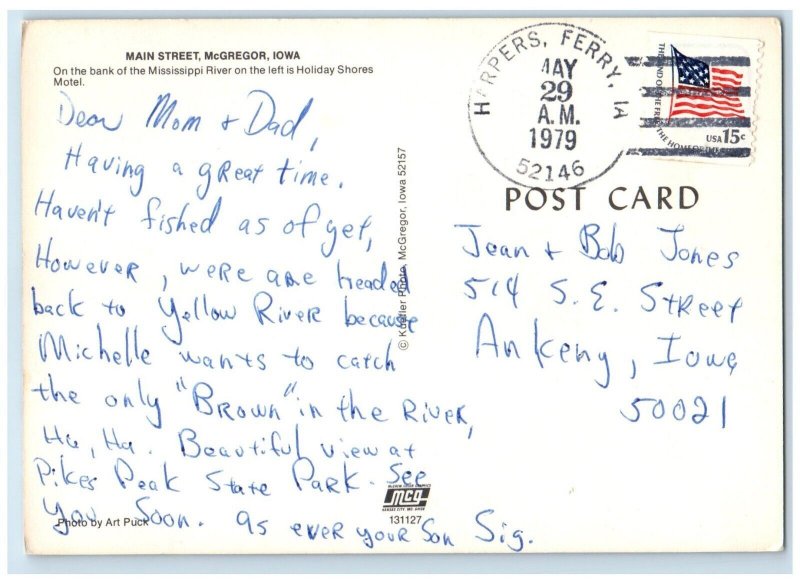 MAIN STREET, McGREGOR, IOWA
On the bank of the Mississippi River on the left is Holiday Shores
Motel.
Dear Mom + Dad,
Having a great time.
Haven't fished as of yet,
However, were are headed
back to Yellow River because
Michelle wants to catch
the only "Brown" in the River,
Ha, Ha. Beautiful view at
Pikes Peak State Park. See
you Soon. as ever your Son Sig.
Photo by Art Puck
© Photo, McGregor, Iowa 52157
mcg
KANSAS CITY, MO.
131127
HARPERS, FERRY, IA
MAY
29
A.M.
1979
52146
USA 15c
POST CARD
Jean + Bob Jones
514 S.E. Street
Ankeny, Iowa
50021